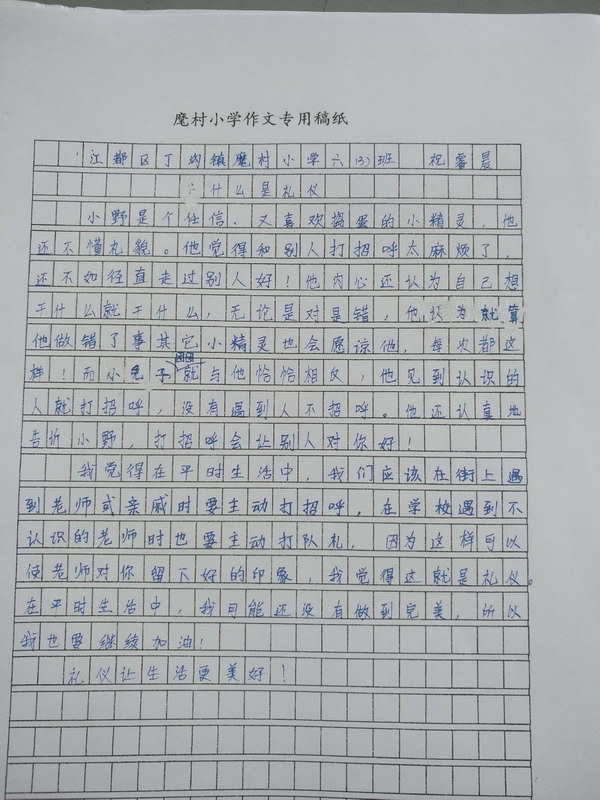 麾村小学作文专用稿纸
江都区丁沟镇麾村小学六(3)班 祝睿晨
什么是礼仪
小野是个任信、又喜欢捣蛋的小精灵,他
还不懂礼貌。他觉得和别人打招呼太麻烦了,
还不如径直走过别人好!他内心还认为自己想
干什么就干什么,无论是对是错,他认为就算
他做错了事其它小精灵也会愿谅他,每次都这
样!而小兔子就与他恰恰相反,他见到认识的
人就打招呼,没有遇到人不招呼。他还认真地
告诉小野,打招呼会让别人对你好!
我觉得在平时生活中,我们应该在街上遇
到老师或亲戚时要主动打招呼,在学校遇到不
认识的老师时也要主动打队礼,因为这样可以
使老师对你留下好的印象,我觉得这就是礼仪。
在平时生活中,我可能还没有做到完美,所以
我也要继续加油!
礼仪让生活更美好!